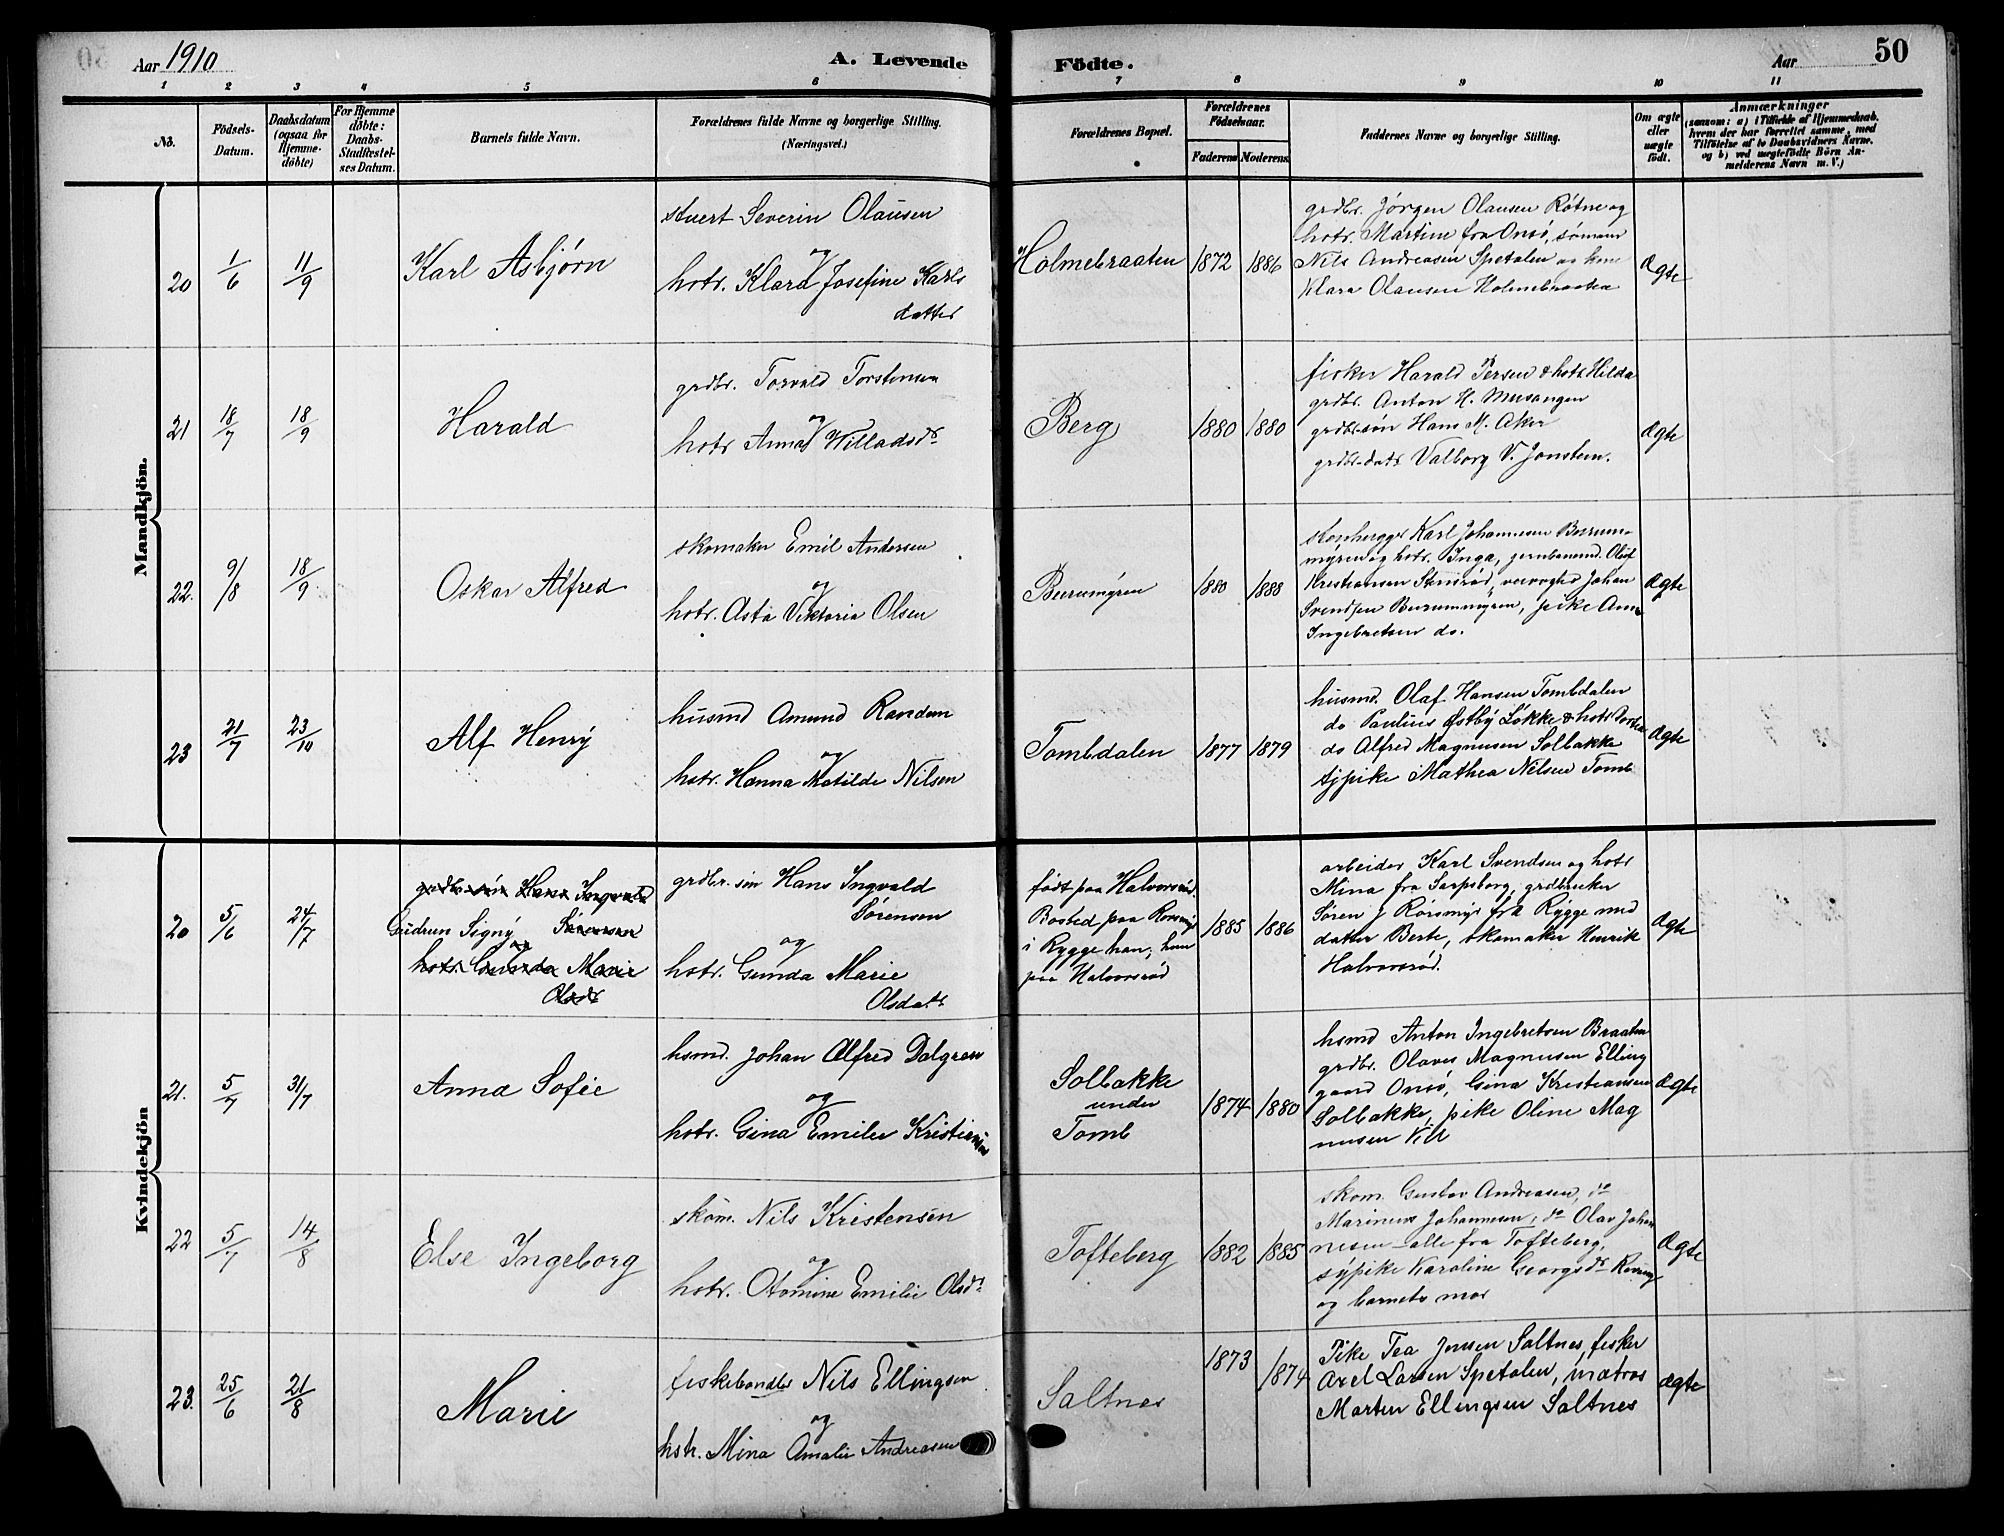 Aar 1910
A. Levende Födte.
Aar
50
1 2 3 4 5 6 7 8 9 10 11
No.
Födsels-
Datum.
Daabsdatum
(ogsaa for
Hjemme-
döbte)
For Hjemme
döbte:
Daabs-
Stadfæstel-
ses Datum.
Barnets fulde Navn.
Forældrenes fulde Navne og borgerlige Stilling.
(Næringsvei.)
Forældrenes Bopæl.
Forældrenes
Födselsaar.
Faderens Moderens
Faddernes Navne og borgerlige Stilling.
Om ægte
eller
uægte
födt.
Anmærkninger
(saasom: a) i Tilfælde af Hjemmedaab,
hvem der har forrettet samme, med
Tilföielse af to Daabsvidners Navne,
og b) ved uægtefödte Börn An-
melderens Navn m. V.)
Mandkjön.
20
1/6
11/9
Karl Asbjørn
stuert Severin Olausen
og
hstr. Klara Josefine Karls
datter
Holmebraaten
1872
1886
grdbr. Jørgen Olausen Røtne og
hstr. Martine fra Onsø, sømann
Nils Andreasen Spetalen og kone
Klara Olausen Holmebraaten
ægte
21
18/7
18/9
Harald
grdbr. Torvald Torstensen
og
hstr Anna Willadsdr
Berg
1880
1880
fisker Harald Persen & hstr Hilda
grdbr. Anton H. Musangen
grdbrsøn Hans M. Aker
grdbr.datr Valborg V. Jonsten.
ægte
22.
9/8
18/9
Oskar Alfred
skomaker Emil Andersen
og
hstr. Asta Viktoria Olsen
Beerumyren
1880
1888
stenhugger Karl Johannesen Beerum-
myren og hstr. Inga, jernbanemd. Olaf
Kristiansen Stensrød, veivogted Johan
Svendsen Beerummyren, pike Anna
Ingebretsen do.
ægte
23
21/7
23/10
Alf Henry
husmd Amund Randem
og
hstr. Hanna Matilde Nilsen
Tombdalen
1877
1879
husmd. Olaf Hansen Tombdalen
do Paulius Østby Løkke & hstr
do Alfred Magnusen Solbakke
tjpike Mathea Nilsen Tomb
ægte
Kvindekjön
20
5/6
24/7
grdbr søn Hans Ingvald
Gudrun Signy Sørensen
og
hstr. Gunda Marie
Olsdr
grdbr. søn Hans Ingvald
Sørensen
og
hstr. Gunda Marie
Olsdatr
født paa Halvorsrød.
Bosted paa Rørsmyr
i Rygge han, hun
paa Halvorsrød
1885
1886
arbeider Karl Svendsen og hstr
Mina fra Sarpsborg, grdbruker
Søren J Rørsmyr fra Rygge med
datter Berte, skomaker Henrik
Halvorsrød.
ægte
21.
5/7
31/7
Anna Sofie
hsmd. Johan Alfred Dalgren
og
hstr. Gina Emilie Kristiansen
Solbakke
under
Tomb
1874
1880
hsmd Anton Ingebretsen Braaten
grdbr. Olaves Magnusen Elling
gaard Onsø, Gina Kristiansen
Solbakke, pike Oline Mag
nusen
ægte
22
5/7
14/8
Else Ingeborg
skom. Nils Kristensen
og
hstr. Otomine Emilie Olsdr
Tofteberg
1882
1885
skom. Gustav Andreasen, do
Marinius Johannesen, do Olav Johan
nesen – alle fra Tofteberg,
sypike Karoline Georgsdr
og barnets mor
ægte
23.
25/6
21/8
Marie
fiskehandler Nils Ellingsen
og
hstr. Mina Amalie Andreasen
Saltnes
1873
1874
Pike Tea Jensen Saltnes, fisker
Axel Larsen Spetalen, matros
Marten Ellingsen Saltnes
ægte